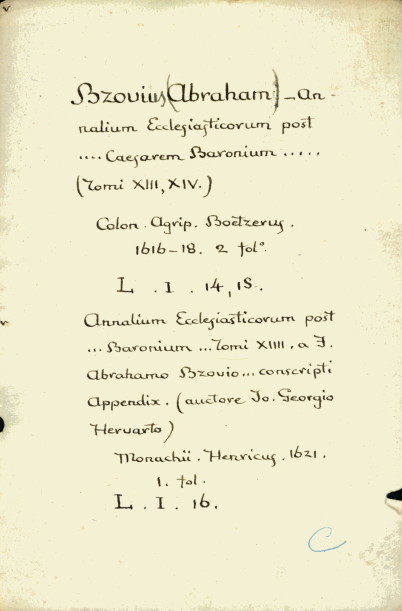 Bzovius (Abraham) – An-
nalium Ecclesiasticorum post
.... Caesarem Baronium .....
(Tomi XIII, XIV.)
Colon. Agrip. Boëtzerus.
1616–18. 2 fol°.
L . I . 14, 18.
Annalium Ecclesiasticorum post
... Baronium ... Tomi XIIII. a F.
Abrahamo Bzovio ... conscripti
Appendix. (auctore Jo. Georgio
Hervarto)
Monachii. Henricus. 1621.
1. fol.
L . I . 16.
C